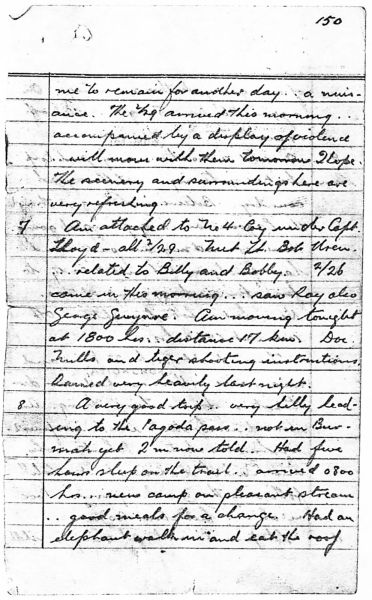 150
me to remain for another day.. a nuis-
ance. The 2/29 arrived this morning..
accompanied by a display of violence
.. will move with them tomorrow I hope.
The scenery and surroundings here are
very refreshing.
7 Am attached to No 4 Coy under Capt.
Lloyd - all 2/29. Met Lt. Bob Uren..
.. related to Billy and Bobby. 2/26
came in this morning... saw Ray also
George. Am moving tonight
at 1800 hrs.. distance 17 km. Doc
Mills and tiger shooting instructions.
Rained very heavily last night.
8 A very good trip.. very hilly lead-
ing to the Pagoda pass.. not in Bur-
mah yet I'm now told. Had five
hours sleep on the trail.. arrived 0800
hrs... new camp on pleasant stream
.. good meals for a change. Had an
elephant walk in and eat the roof